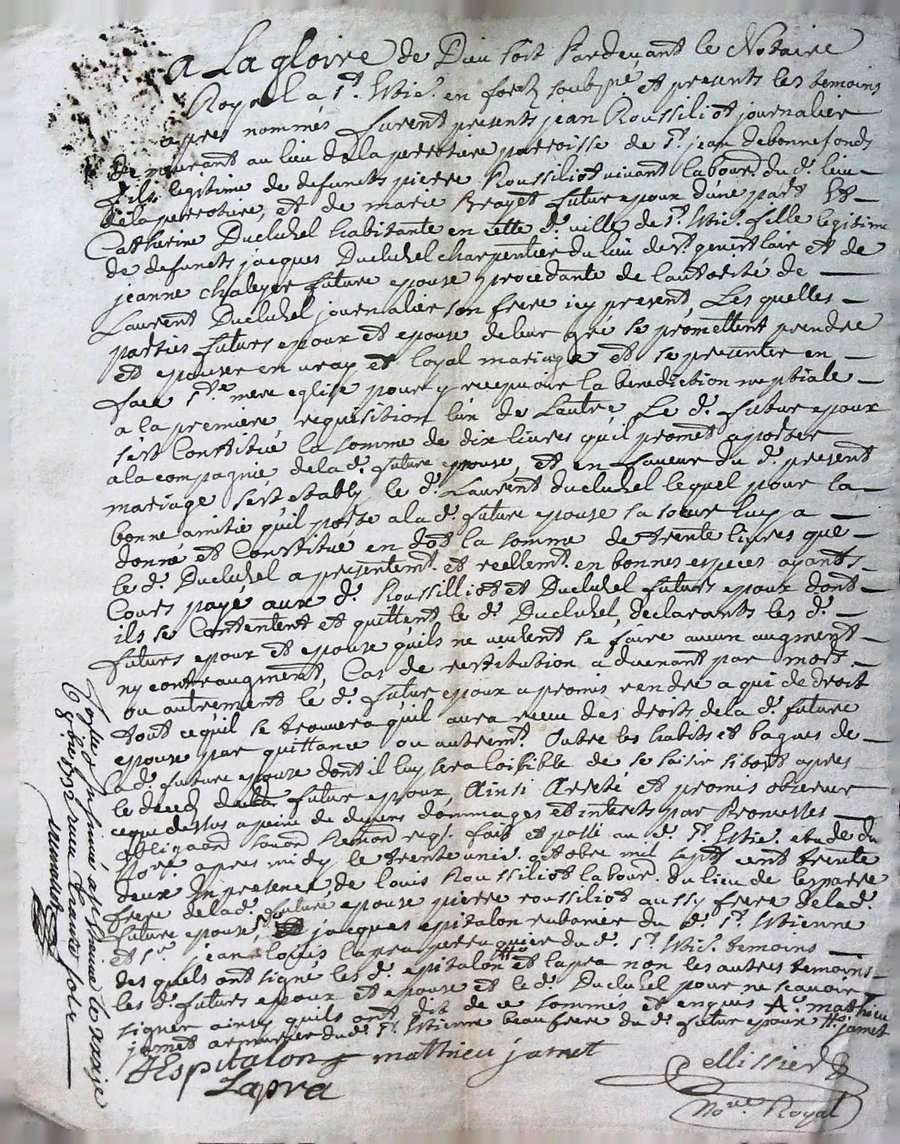 A La gloire de Dieu soit Pardevant le Notaire
Royal a St. Etie. en forest soubsne. et presents les temoins
apres nommés furent presents jean Roussiliot journalier
demeurant au lieu de la perrotiere parroisse de St. jean de bonnefonds
fils legitime de defunts pierre Roussiliot vivant labourd. du d. lieu
de la perrotiere, et de marie Brayet futur epoux d'une part Et
Catherine Ducluzel habitante en cette d. ville de St. Etie. fille legitime
de defunts jacques Ducluzel charpentier du lieu de St. genest lair et de
jeanne chaleyer future epouse procedante de l'autorité de
Laurent Ducluzel journalier son frere icy present, Les quelles
parties futurs epoux et epouse de leur gré se promettent prendre
et epouser en vray et loyal mariage et se presenter en
face Ste. mere eglise pour y recepvoir la benediction nuptiale
a la premiere requisition l'un de l'autre Le d. futur epoux
s'est Constitué la somme de dix livres qu'il promet aporter
a la compagnie de la d. future epouse, et en faveur du d. present
mariage s'est etably le d. Laurent ducluzel lequel pour la
bonne amitié qu'il porte a la d. future epouse sa soeur luy a
donné et Constitué en dot la somme de trente livres que
le d. Ducluzel a presentemt. et reellemt. en bonnes especes ayants
Cours payé aux d. Roussilliot et Ducluzel futurs epoux dont
ils se Contentent et quittent le d. Ducluzel, declarants les d.
futurs epoux et epouse qu'ils ne veulent se faire aucun augment
ny contraugment, Cas de restitution advenant par mort
ou autrement le d. futur epoux a promis rendre a qui de droit
tout ce qu'il se trouvera qu'il aura receu des droits de la d. future
epouse par quittance ou autremt. Outre les habits et bagues de
la d. future epouse dont il luy sera loisible de se saisir sitost apres
le deced du d. futur epoux, Ainsi Arreté et promis observer
ce que dessus a peine de depens dommages et interets par Promesses
obligaon souon Renon reqs. fait et passé au d. St. Etie. etude du
nore. apres midy le trente uni. octobre mil sept cent trente
deux In presence de Louis Roussiliot labour. du lieu de lesparre
frere de la d. future epouse pierre roussiliot aussy frere de la d.
future epouse, Sr. jacques epitalon rubanier du d. St. Etienne
et Sr. jean Louis Lapra perruquier du d. St. Etie. temoins
des quels ont signé les d. epitalon et Lapra non les autres temoins
les d. futurs epoux et epouse et le d. Ducluzel pour ne scavoir
signer ainsy qu'ils ont dit de ce sommés et enquis Ac. mathieu
jamet armurier du d. St. Etienne beaufrere du d. futur epoux
jamet
Espitalon mathieu jamet
Lapra
Pellissier
Nore. Royal
Insinué a St. Etienne le treize
9bre. 1732 receu douze sols